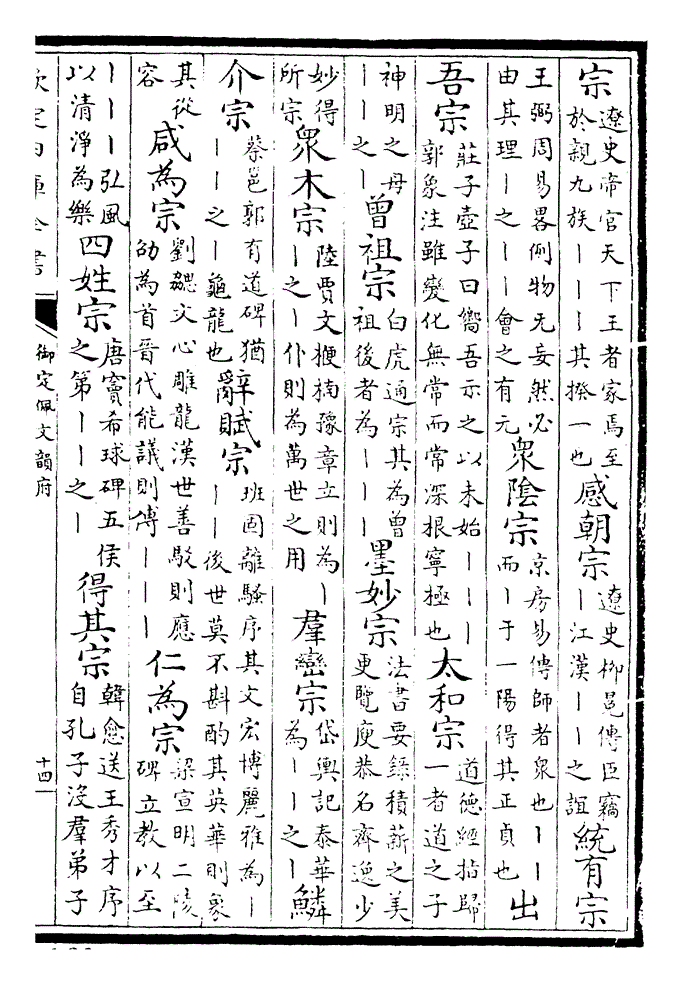 宗遼史帝官天下王者家焉至於親九族丨丨其揆一也感朝宗遼史柳邑傳臣竊丨江漢丨丨之誼統有宗
王弼周易畧例物无妄然必由其理丨之丨丨會之有元衆陰宗京房易傳師者衆也丨丨而丨于一陽得其正貞也出
吾宗莊子壺子曰嚮吾示之以未始丨丨丨郭象注雖變化無常而常深根寧極也太和宗道德經指歸一者道之子
神明之母丨丨之丨曾祖宗白虎通宗其為曾祖後者為丨丨丨墨妙宗法書要録積薪之美更覽庾恭名齊逸少
妙得所宗衆木宗陸賈文楩楠豫章立則為丨丨之丨仆則為萬世之用羣巒宗岱輿記泰華為丨丨之丨鱗
介宗蔡邕郭有道碑猶丨丨之丨龜龍也辭賦宗班固離騷序其文宏博麗雅為丨丨丨後世莫不斟酌其英華則象
其從容咸為宗劉勰文心雕龍漢世善駁則應劭為首晉代能議則傅丨丨丨仁為宗梁宣明二陵碑立教以至
丨丨丨弘風以清淨為樂四姓宗唐竇希球碑五侯之第丨丨之丨得其宗韓愈送王秀才序自孔子沒羣弟子
欽定四庫全書
御定佩文韻府
十四